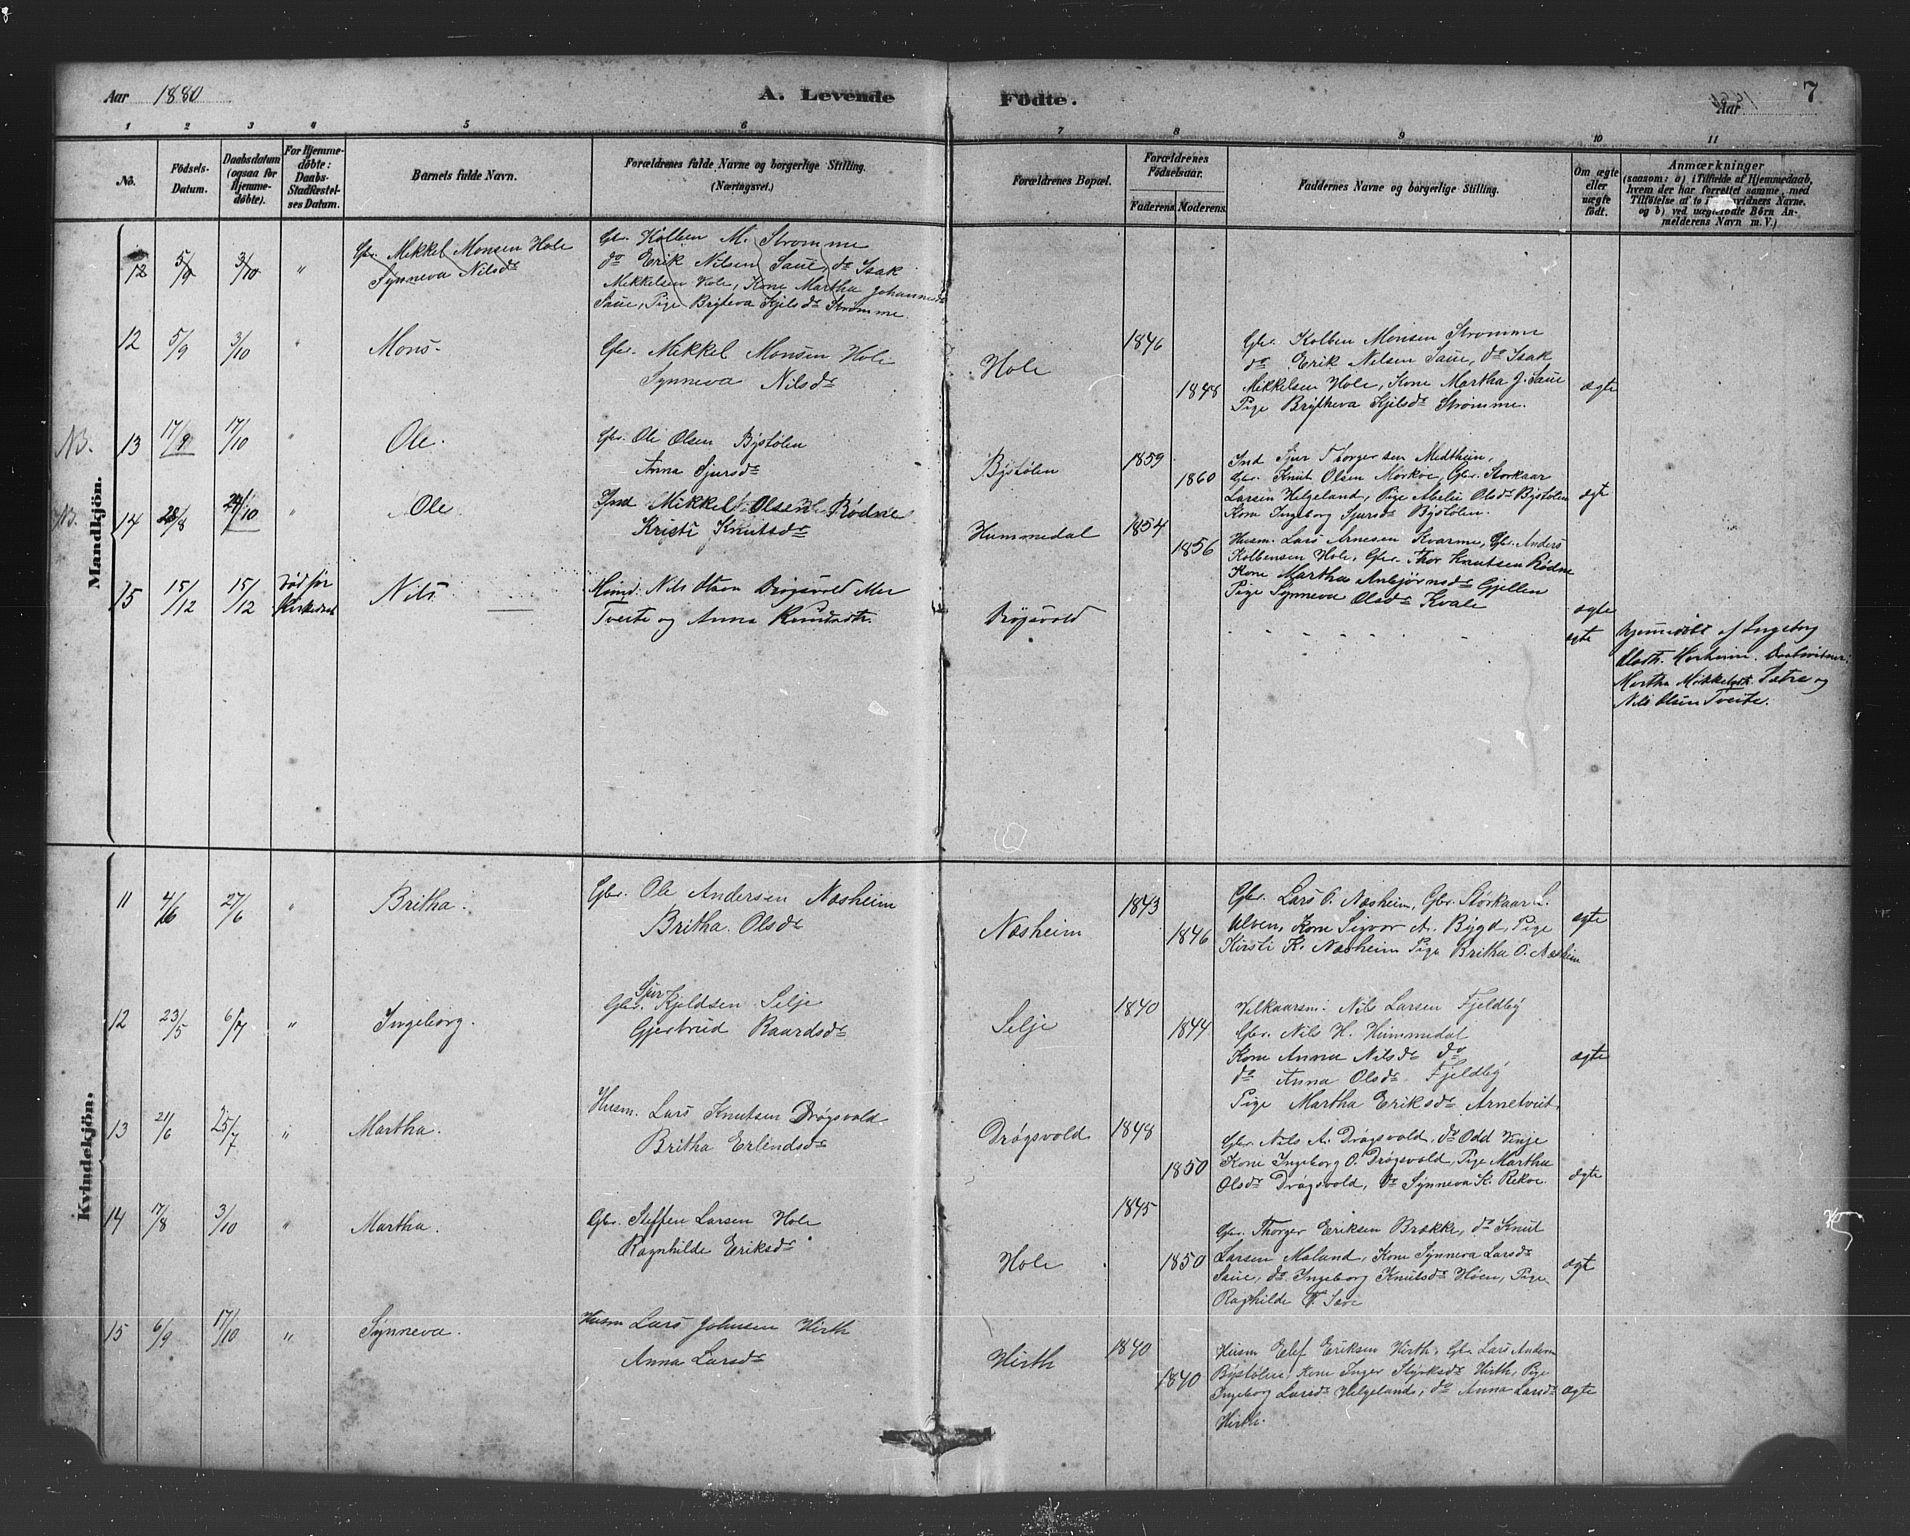 Aar 1880
A. Levende Fødte.
Aar
7
1 2 3 4 5 6 7 8 9 10 11
No.
Fødsels-Datum.
Daabsdatum (ogsaa for Hjemme-døbte).
For Hjemme-døbte: Daabs-Stadfæstel-ses Datum.
Barnets fulde Navn.
Forældrenes fulde Navne og borgerlige Stilling. (Næringsvei.)
Forældrenes Bopæl.
Forældrenes Fødselsaar.
Faderens. Moderens.
Faddernes Navne og borgerlige Stilling.
Om ægte eller uægte født.
Anmærkninger
(saasom: a) i Tilfælde af Hjemmedaab,
hvem der har forrettet samme, med
Tilføielse af to
og b) ved uægtefødte Børn An-
melderens Navn m. V.)
Mandkjön.
12 5/9 3/10 " Gbr. Mikkel Monsen Hole
Synneva Nilsdr
Gbr. Kolben M. Strømme
do Erik Nilsen Saue, do Isak
Mikkelsen Hole, Kone Martha Johannesdr
Saue, Pige Brytteva Kjelsdr Strømme.
12 5/9 3/10 " Mons.
Gbr. Mikkel Monsen Hole
Synneva Nilsdr
Hole
1846
1848
Gbr. Kolben Monsen Strømme
do Erik Nilsen Saue, do Isak
Mikkelsen Hole, Kone Martha J. Saue
Pige Brytheva Kjelsdr Strømme.
ægte
NB. 13 17/9 17/10 " Ole.
Gbr. Ole Olsen Bystølen
Anna Sjursdr
Bystølen
1859
1860
Ind Sjur Thorgersen Medtheim,
Gbr. Knut Olsen Mørkve, Gbr. Storkaar
Larsen Helgeland, Pige Abelie Olsdr Bystølen
Kone Ingeborg Sjursdr Bystølen.
ægt
NB. 14 28/8 24/10 " Ole.
Ind Mikkel Olsen Rødne
Kristi Knutsdr
Hummedal
1854
1856
Husm. Lars Arnesen Kvarme, Gbr. Anders
Kolbensen Hole, Gbr. Thor Knutsen Rødne
Kone Martha Anbjørnsdr Gjellen
Pige Synneva Olsdr Kvale
ægte
15 15/12 15/12 Død før Nils
Nils Olsen Drøgsvold eller
Tveite og Anna Knutsdtr.
Drøgsvold
ægte
hjemmedøbt af Ingeborg
Olsdtr. Horheim. Daabsvidner:
Martha Mikkelsdtr. Sætre og
Nils Olsen Tveite.
Kvindekjön,
11 4/6 27/6 " Britha.
Gbr. Ole Andersen Næsheim
Britha Olsdr
Næsheim
1843
1846
Gbr. Lars O. Næsheim, Gbr. Storkaar L.
Ulven, Kone Sigvor A. Bygd, Pige
Kirsti K. Næsheim Pige Britha O. Næsheim
ægte
12 23/5 6/7 " Ingeborg.
Gbr. Sjur Kjeldsen Selje
Gjertrud Baardsdr
Selje
1840
1844
Vilkaarsm. Nils Larsen Fjeldby
Gbr. Nils H. Hummedal
Kone Anna Nilsdr do
do Anna Olsdr Fjeldby
Pige Martha Eriksdr Arnetveit.
ægte
13 21/6 25/7 " Martha.
Husm. Lars Knutsen Drøgsvold
Britha Erlendsdr
Drøgsvold
1848
1850
Gbr. Nils A. Drøgsvold, do Odd Vinje
Kone Ingeborg O. Drøgsvold, Pige Martha
Olsdr Drøgsvold, do Synneva K. Rekve
ægte
14 17/8 3/10 " Martha.
Gbr. Steffen Larsen Hole
Ragnhilde Eriksdr
Hole
1845
1850
Gbr. Thorger Eriksen Brække, do Knut
Larsen Møland, Kone Synneva Larsdr
Saue, do Ingeborg Knutsdr Høen, Pige
Raghilde
ægt
15 6/9 17/10 " Synneva.
Husm Lars Johnsen Hirth
Anna Larsdr
Hirth
1840
1840
Husm Elef Eriksen Hirth, Gbr. Lars Andersen
Bystølen, Kone Inger Styrksdr Hirth, Pige
Ingeborg Larsdr Helgeland, do Anna Larsdr
Hirth.
ægte